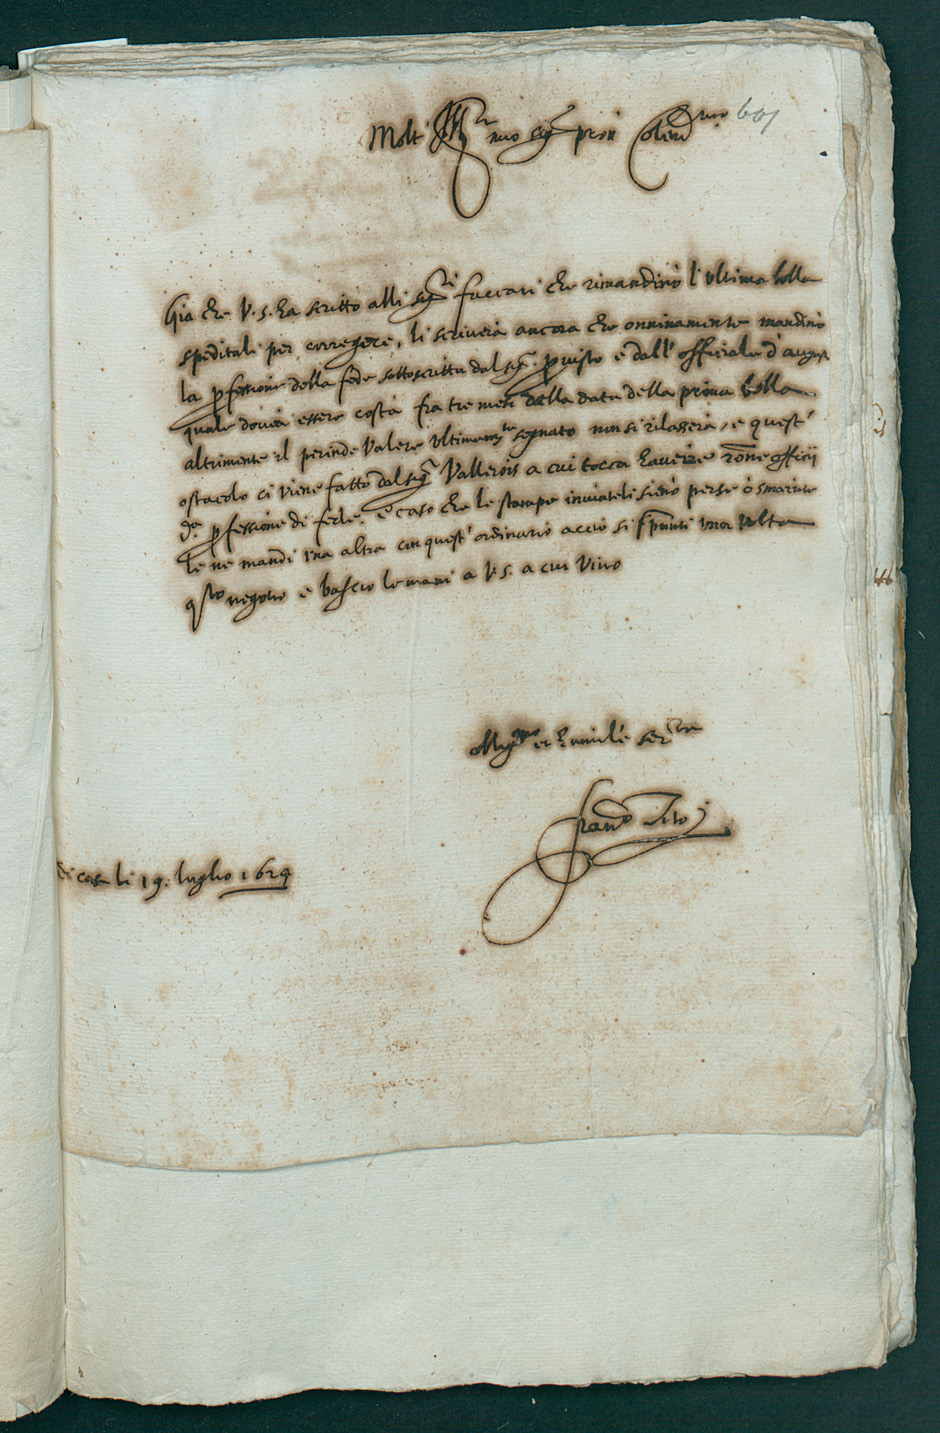 601
Molt Ill.re mio sig.r pron Colend.mo
Gia che V.S. ha scritto alli sig.ri fuccari che rimandino l'ultima bolla
speditali per corregere, li scriverà ancora che onninamente mandino
la professione della fede sottoscritta dal sig.r Provisto e dall'officiale d'augusta
quale dovrà essere costà fra tre mesi della data della prima bolla
altrimente il perinde Valere ultimam.te segnato non si rilasserà, e quest'
ostacolo ci viene fatto dal sig.r Vallerois a cui tocca havere rōne officij
d.a professione di fede. e caso che le stampe inviateli sieno perse ò smarrite
le ne mandi una altra con quest'ordinario acciò si spunti una volta
q.sto negotio e bascio le mani a V.S. a cui vivo
et humile ser.re
Fran.co Tito
di casa li 19. luglio 1629